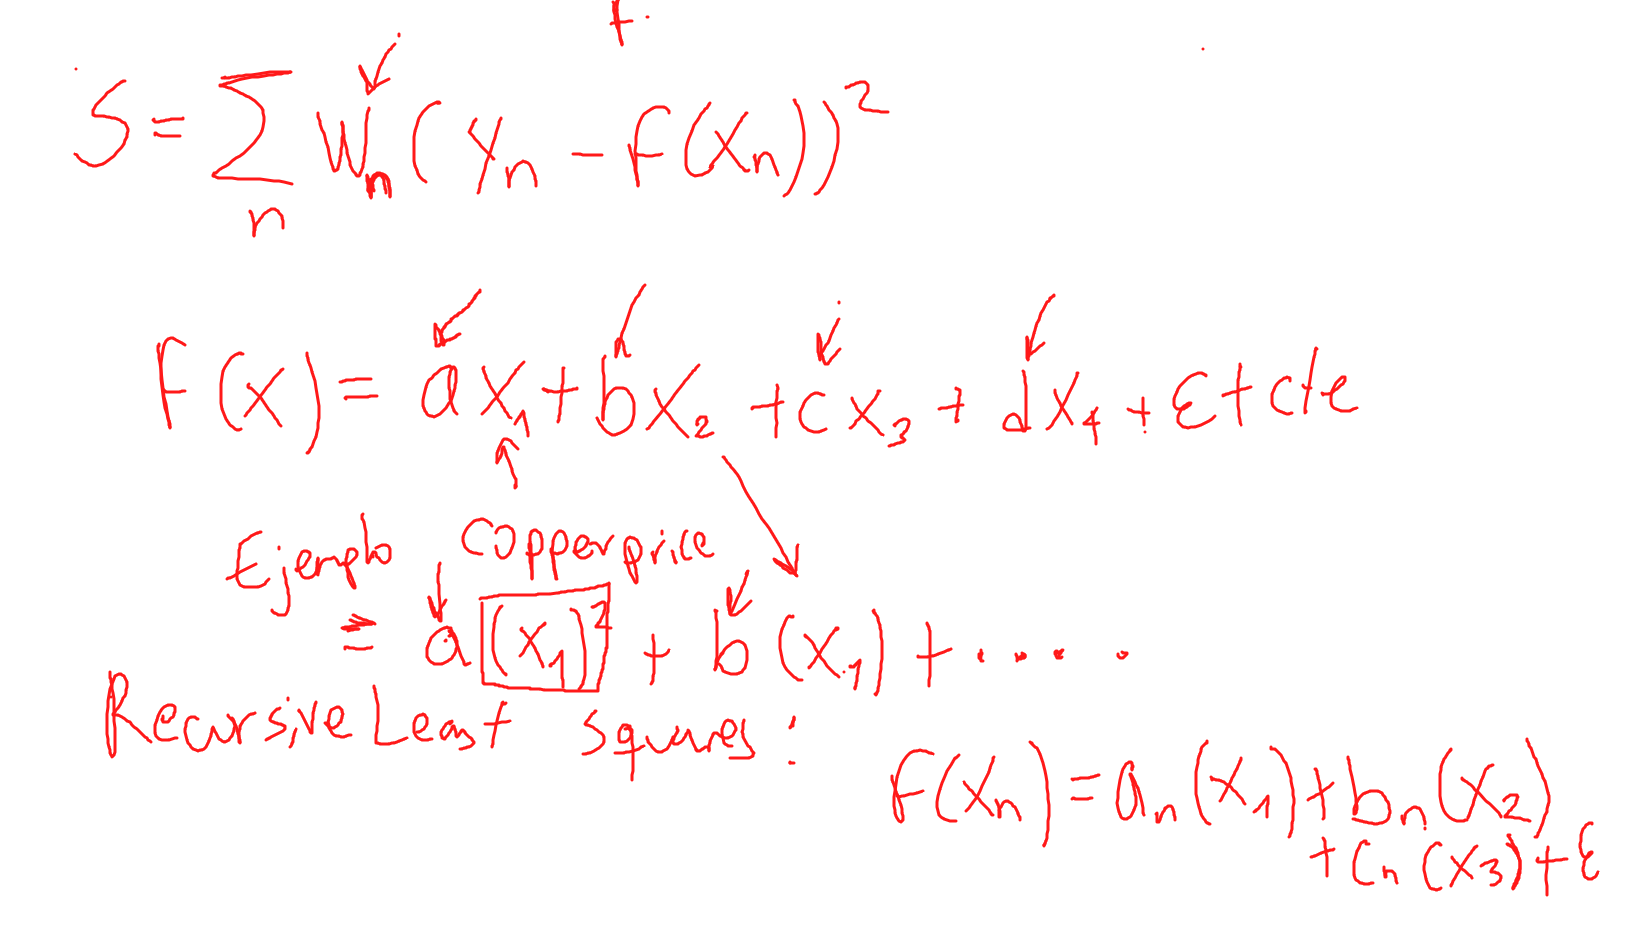 S = Σ Wn (yn - F(xn))²
n
F(x) = ax₁ + bx₂ + cx₃ + dx₄ + ε + cte
Ejemplo Copper price
= a (x₁)² + b (x₁) + .....
Recursive Least Squares:
F(xn) = an(x₁) + bn(x₂)
+ cn (x₃) + ε